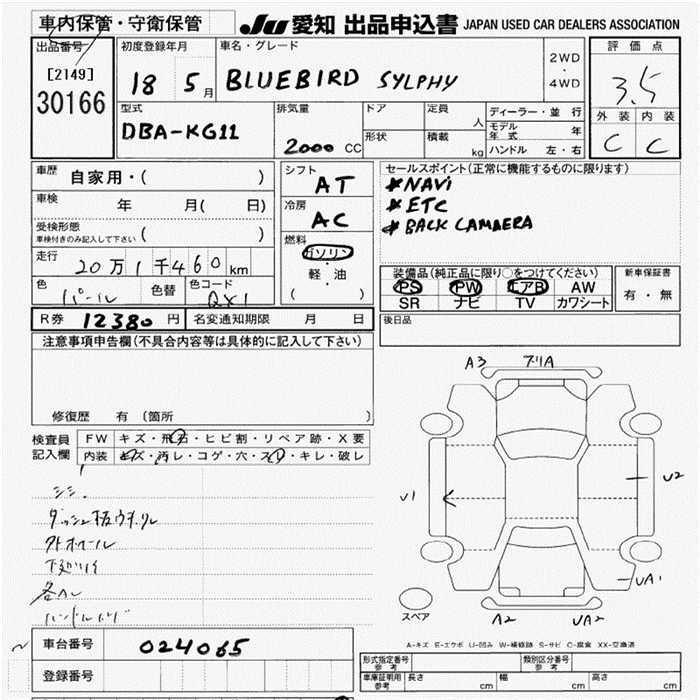 車内保管・守衛保管
JU 愛知 出品申込書 JAPAN USED CAR DEALERS ASSOCIATION
出品番号
[2149]
30166
初度登録年月
18 5月
車名・グレード
BLUEBIRD SYLPHY
2WD
・
4WD
評価点
3.5
外装 内装
C C
型式
DBA-KG11
排気量
2000 CC
ドア
形状
定員
人
積載
kg
ディーラー・並行
モデル年式 年
ハンドル 左・右
車歴
自家用・( )
車検
年 月( 日)
受検形態
車検付きのみ記入して下さい ( )
走行
20万1千460km
色
パール
色替
色コード
QX1
シフト
AT
冷房
AC
燃料
ガソリン
・
軽・油
( )
セールスポイント(正常に機能するものに限ります)
*NAVi
*ETC
*BACK CAMAERA
装備品(純正品に限り〇をつけてください)
PS PW エアB AW
SR ナビ TV カワシート
新車保証書
有・無
R券 12380 円
名変通知期限 月 日
後日品
注意事項申告欄(不具合内容等は具体的に記入して下さい)
修復歴 有 (箇所 )
検査員
記入欄
FW キズ・飛石・ヒビ割・リペア跡・X要
内装 キズ・汚レ・コゲ・穴・スレ・キレ・破レ
A3
U1
U2
UA1
A2
UA2
スペア
A-キズ E-エクボ U-凹み W-補修跡 S-サビ C-腐食 XX-交換済
車台番号
024065
登録番号
形式指定番号
参考
類別区分番号
参考
車庫証明用
参考
長さ cm
幅 cm
高さ cm